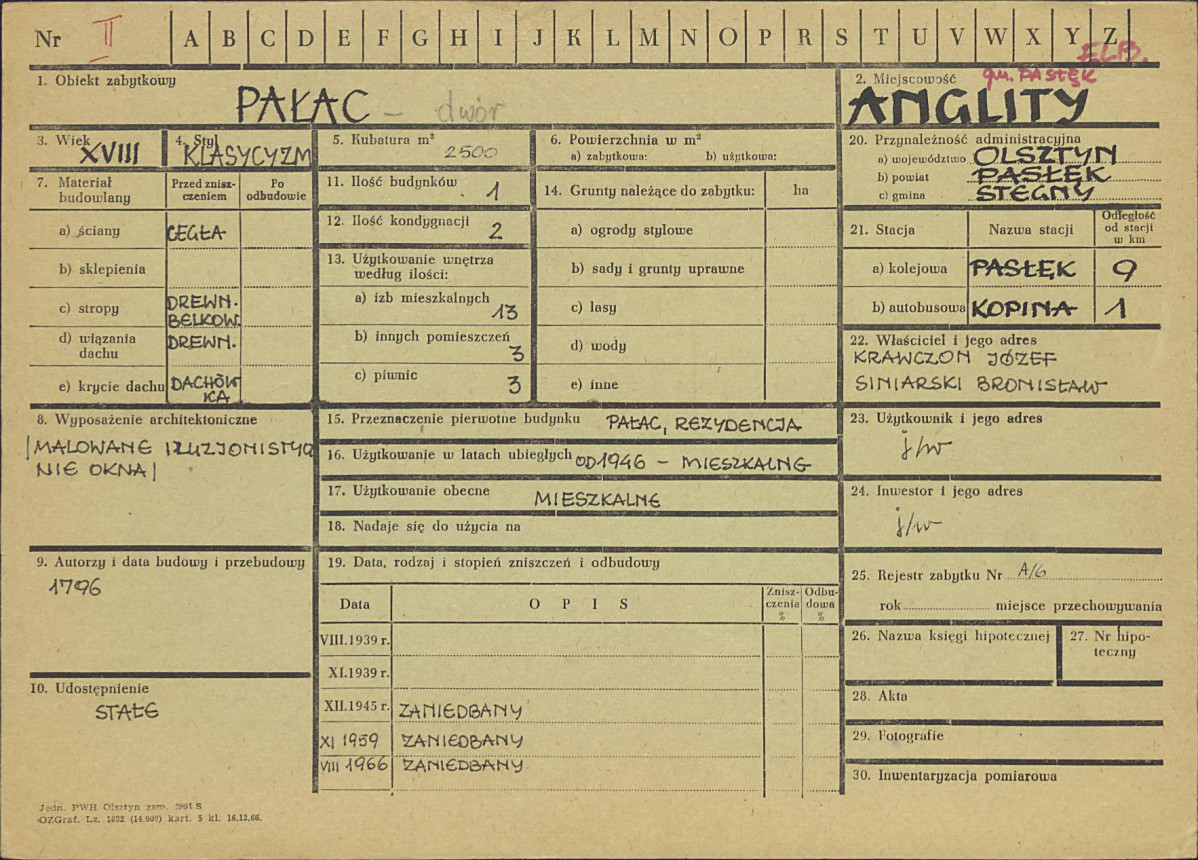 Nr II A B C D E F G H I J K L M N O P R S T U V W X Y Z
ELB.
gm. PASŁĘK
1. Obiekt zabytkowy
PAŁAC – dwór
2. Miejscowość
ANGLITY
3. Wiek
XVIII
4. Styl
KLASYCYZM
5. Kubatura m³
2500
6. Powierzchnia w m²
a) zabytkowa: b) użytkowa:
20. Przynależność administracyjna
a) województwo OLSZTYN
b) powiat PASŁĘK
c) gmina STEGNY
7. Materiał budowlany
Przed zniszczeniem
Po odbudowie
a) ściany CEGŁA
b) sklepienia
c) stropy DREWN. BELKOW.
d) wiązania dachu DREWN.
e) krycie dachu DACHÓWKA
11. Ilość budynków 1
12. Ilość kondygnacji 2
13. Użytkowanie wnętrza według ilości:
a) izb mieszkalnych 13
b) innych pomieszczeń 3
c) piwnic 3
14. Grunty należące do zabytku: ha
a) ogrody stylowe
b) sady i grunty uprawne
c) lasy
d) wody
e) inne
21. Stacja Nazwa stacji Odległość od stacji w km
a) kolejowa PASŁĘK 9
b) autobusowa KOPINA 1
22. Właściciel i jego adres
KRAWCZON JÓZEF
SINIARSKI BRONISŁAW
8. Wyposażenie architektoniczne
/MALOWANE ILUZJONISTYCZ
NIE OKNA/
15. Przeznaczenie pierwotne budynku PAŁAC, REZYDENCJA
16. Użytkowanie w latach ubiegłych OD 1946 – MIESZKALNE
17. Użytkowanie obecne MIESZKALNE
18. Nadaje się do użycia na
23. Użytkownik i jego adres
j/w
24. Inwestor i jego adres
j/w
9. Autorzy i data budowy i przebudowy
1796
19. Data, rodzaj i stopień zniszczeń i odbudowy
Data OPIS Zniszczenia % Odbudowa %
VIII.1939 r.
XI.1939 r.
XII.1945 r. ZANIEDBANY
XI 1959 ZANIEDBANY
VIII 1966 ZANIEDBANY
25. Rejestr zabytku Nr A/6
rok miejsce przechowywania
26. Nazwa księgi hipotecznej
27. Nr hipoteczny
10. Udostępnienie
STAŁE
28. Akta
29. Fotografie
30. Inwentaryzacja pomiarowa
Jedn. PWH Olsztyn zam. S
OZGraf. Lz. 1652 (14.000) kart. 5 kl. 16.12.66.